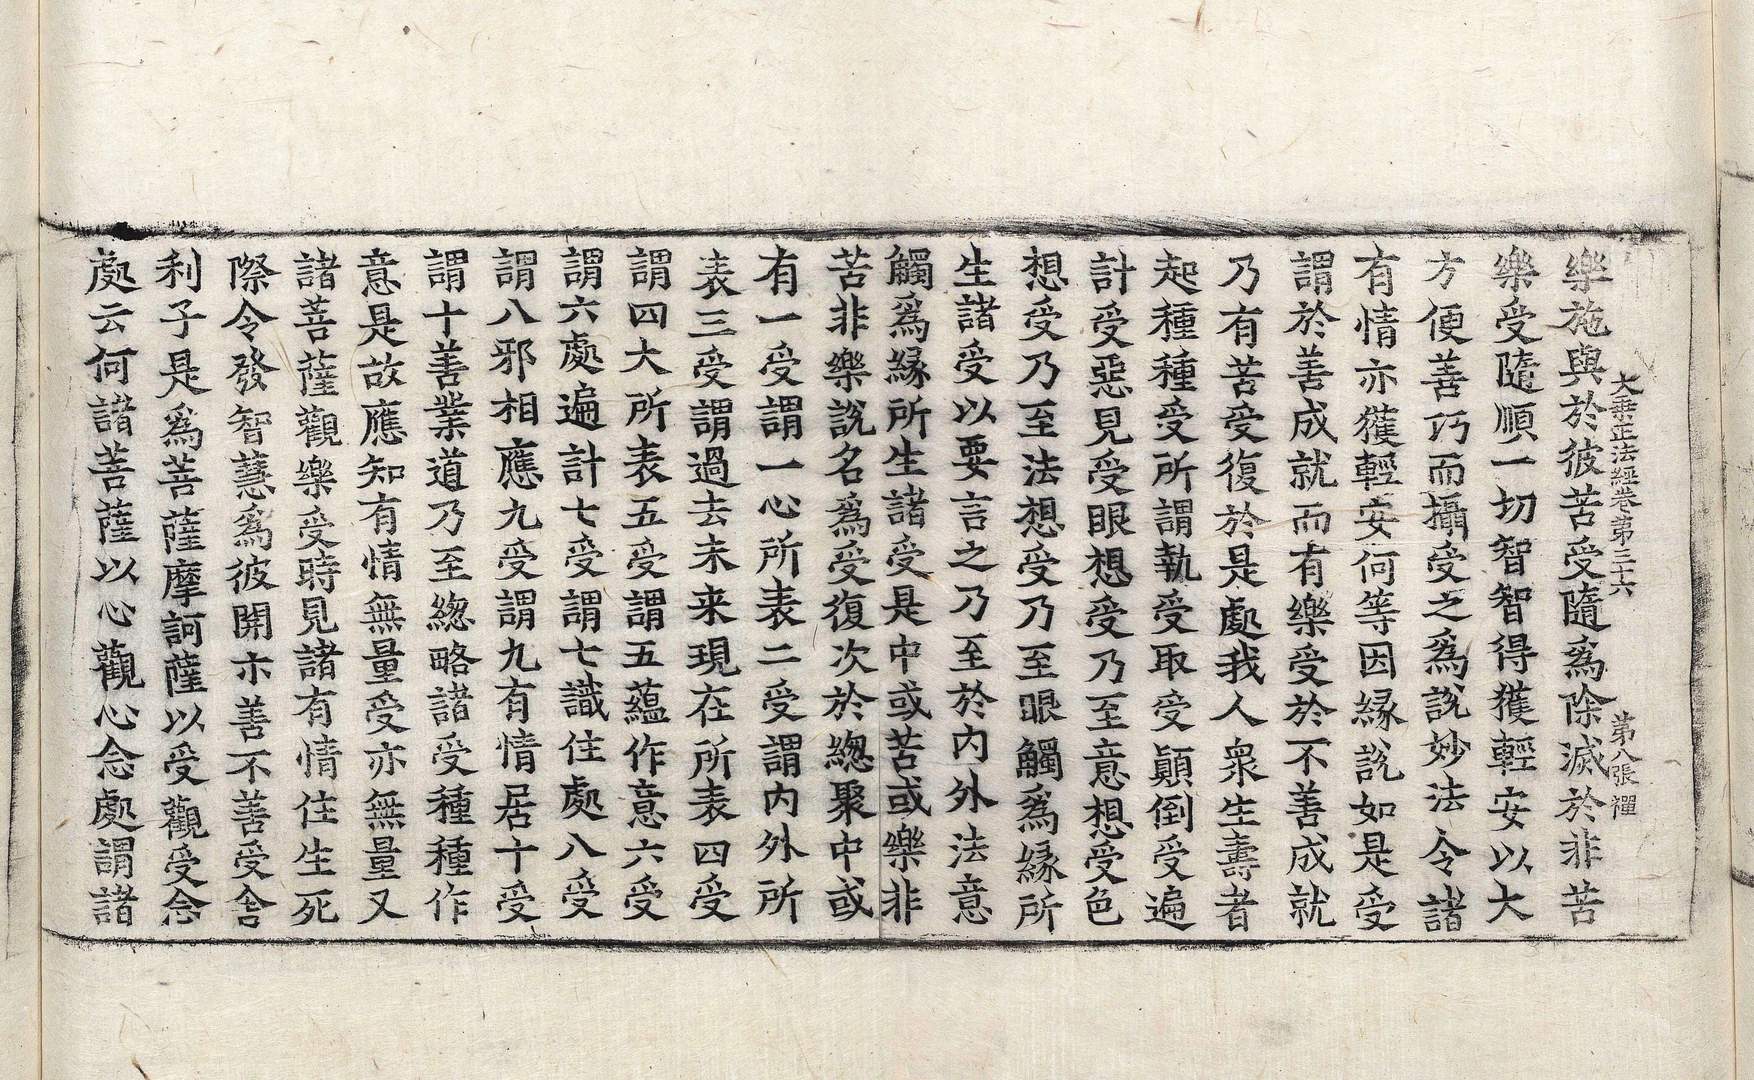 大乗正法經卷第三十六　第八張　禪
樂施與於彼苦受隨爲除滅於非苦
樂受隨順一切智智得獲輕安以大
方便善巧而攝受之爲說妙法令諸
有情亦獲輕安何等因緣說如是受
謂於善成就而有樂受於不善成就
乃有苦受復於是處我人衆生壽者
起種種受所謂執受取受顚倒受遍
計受惡見受眼想受乃至意想受色
想受乃至法想受乃至眼觸爲緣所
生諸受以要言之乃至於內外法意
觸爲緣所生諸受是中或苦或樂非
苦非樂說名爲受復次於緫聚中或
有一受謂一心所表二受謂內外所
表三受謂過去未来現在所表四受
謂四大所表五受謂五蘊作意六受
謂六處遍計七受謂七識住處八受
謂八邪相應九受謂九有情居十受
謂十善業道乃至緫略諸受種種作
意是故應知有情無量受亦無量又
諸菩薩觀樂受時見諸有情住生死
際令發智慧爲彼開示善不善受舍
利子是爲菩薩摩訶薩以受觀受念
處云何諸菩薩以心觀心念處謂諸